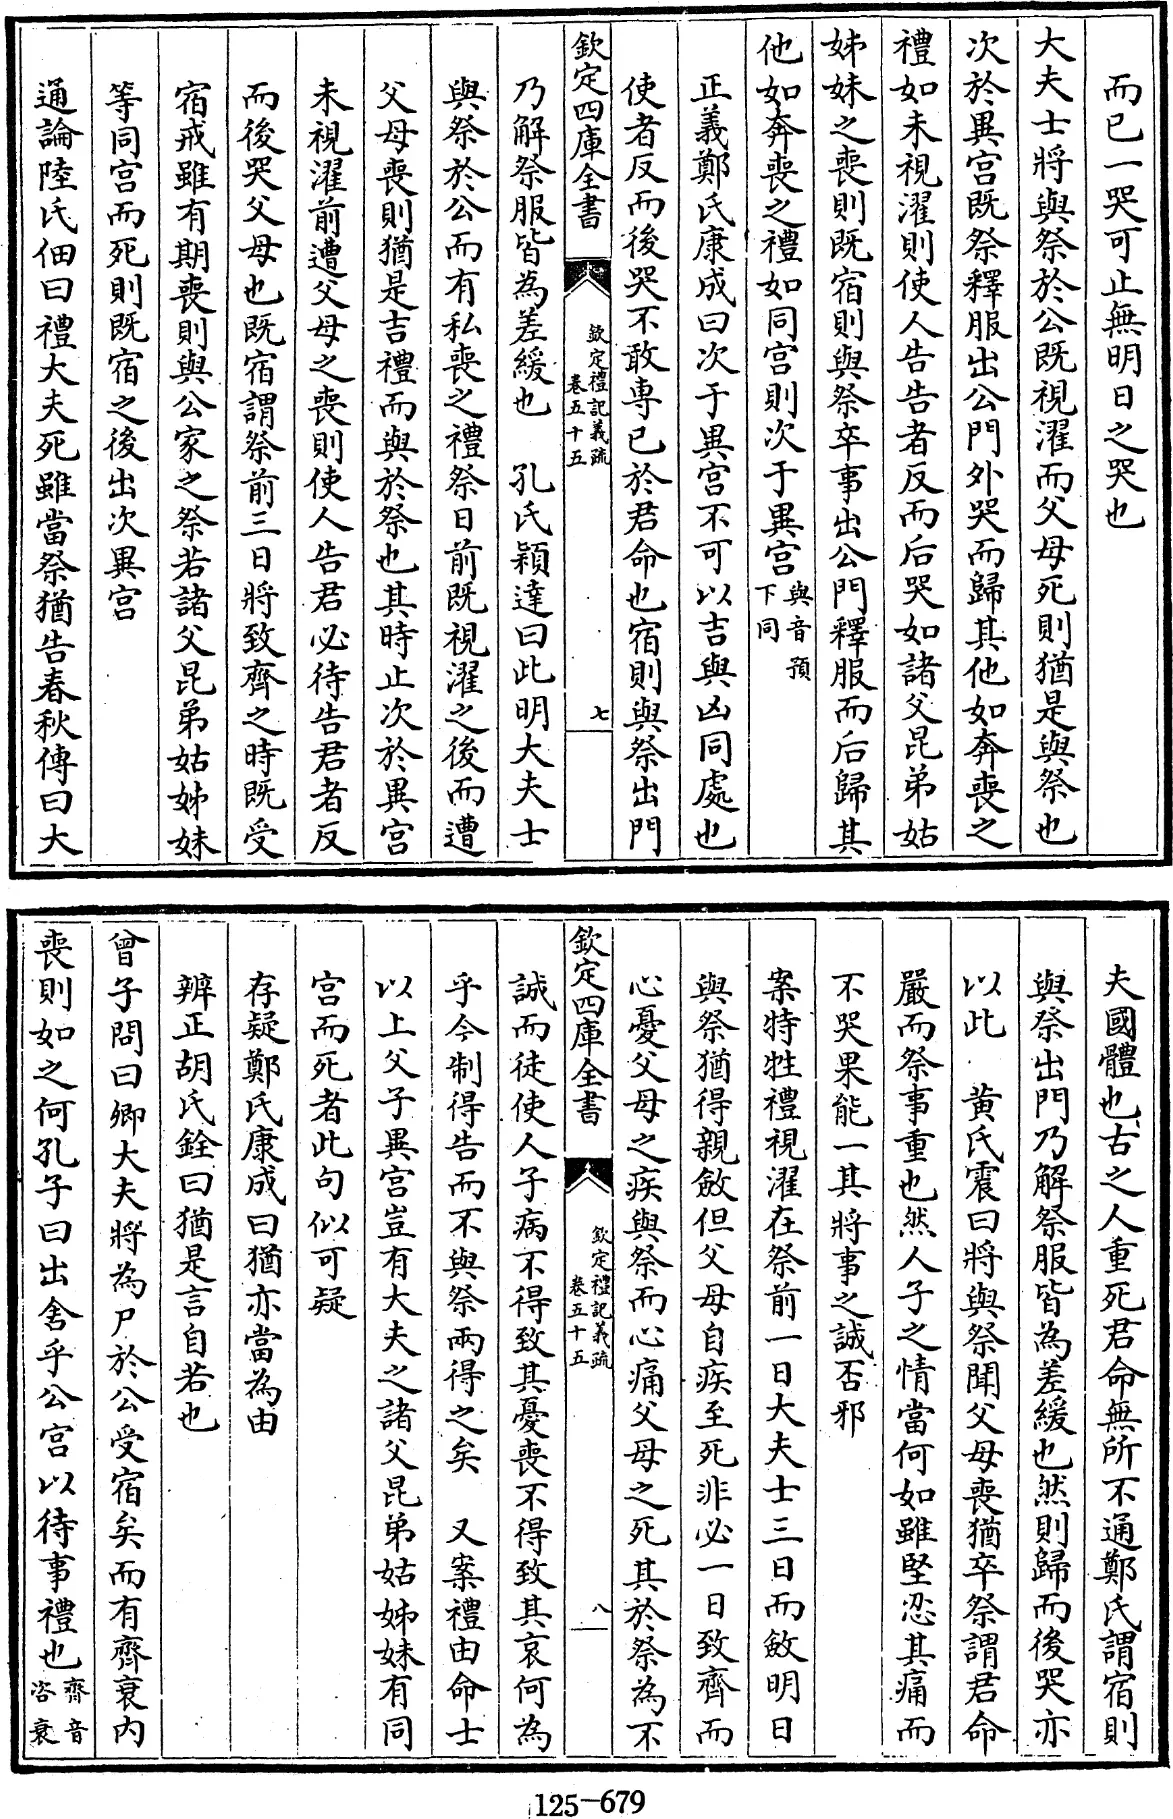 而已一哭可止無明日之哭也
大夫士將與祭於公既視濯而父母死則猶是與祭也
次於異宮既祭釋服出公門外哭而歸其他如奔喪之
禮如未視濯則使人告告者反而后哭如諸父昆弟姑
姊妹之喪則既宿則與祭卒事出公門釋服而后歸其
他如奔喪之禮如同宮則次于異宮與音預下同
正義鄭氏康成曰次于異宮不可以吉與凶同處也
使者反而後哭不敢專已於君命也宿則與祭出門
欽定四庫全書 欽定禮記義疏卷五十五 七
乃解祭服皆為差緩也 孔氏穎達曰此明大夫士
與祭於公而有私喪之禮祭日前既視濯之後而遭
父母喪則猶是吉禮而與於祭也其時止次於異宮
未視濯前遭父母之喪則使人告君必待告君者反
而後哭父母也既宿謂祭前三日將致齊之時既受
宿戒雖有期喪則與公家之祭若諸父昆弟姑姊妹
等同宮而死則既宿之後出次異宮
通論陸氏佃曰禮大夫死雖當祭猶告春秋傳曰大
夫國體也古之人重死君命無所不通鄭氏謂宿則
與祭出門乃解祭服皆為差緩也然則歸而後哭亦
以此 黃氏震曰將與祭聞父母喪猶卒祭謂君命
嚴而祭事重也然人子之情當何如雖堅忍其痛而
不哭果能一其將事之誠否邪
案特牲禮視濯在祭前一日大夫士三日而斂明日
與祭猶得親斂但父母自疾至死非必一日致齊而
心憂父母之疾與祭而心痛父母之死其於祭為不
欽定四庫全書 欽定禮記義疏卷五十五 八
誠而徒使人子病不得致其憂喪不得致其哀何為
乎今制得告而不與祭兩得之矣 又案禮由命士
以上父子異宮豈有大夫之諸父昆弟姑姊妹有同
宮而死者此句似可疑
存疑鄭氏康成曰猶亦當為由
辨正胡氏銓曰猶是言自若也
曾子問曰卿大夫將為尸於公受宿矣而有齊衰內
喪則如之何孔子曰出舍乎公宮以待事禮也齊音咨衰
125-679